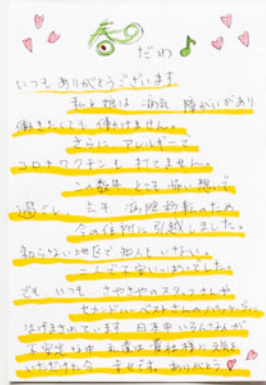 春の
だわ
いつもありがとうございます
私と娘は 病気 障がいがあり
働きたくても 働けません。
さらに アレルギーで
コロナワクチンも 打てません。
この数年 とても怖い想いで
過ごし、去年 病院移転のため
今の住所に引越しました。
知らない地区で 知人もいない。
二人で
でした。
でも いつも スタッフさんや
セカンドハーベストさんの
はげまされています 日本中 いろんな人が
不安定な中 私達は 貴社様に 
いただけた分 幸せです。ありがとう